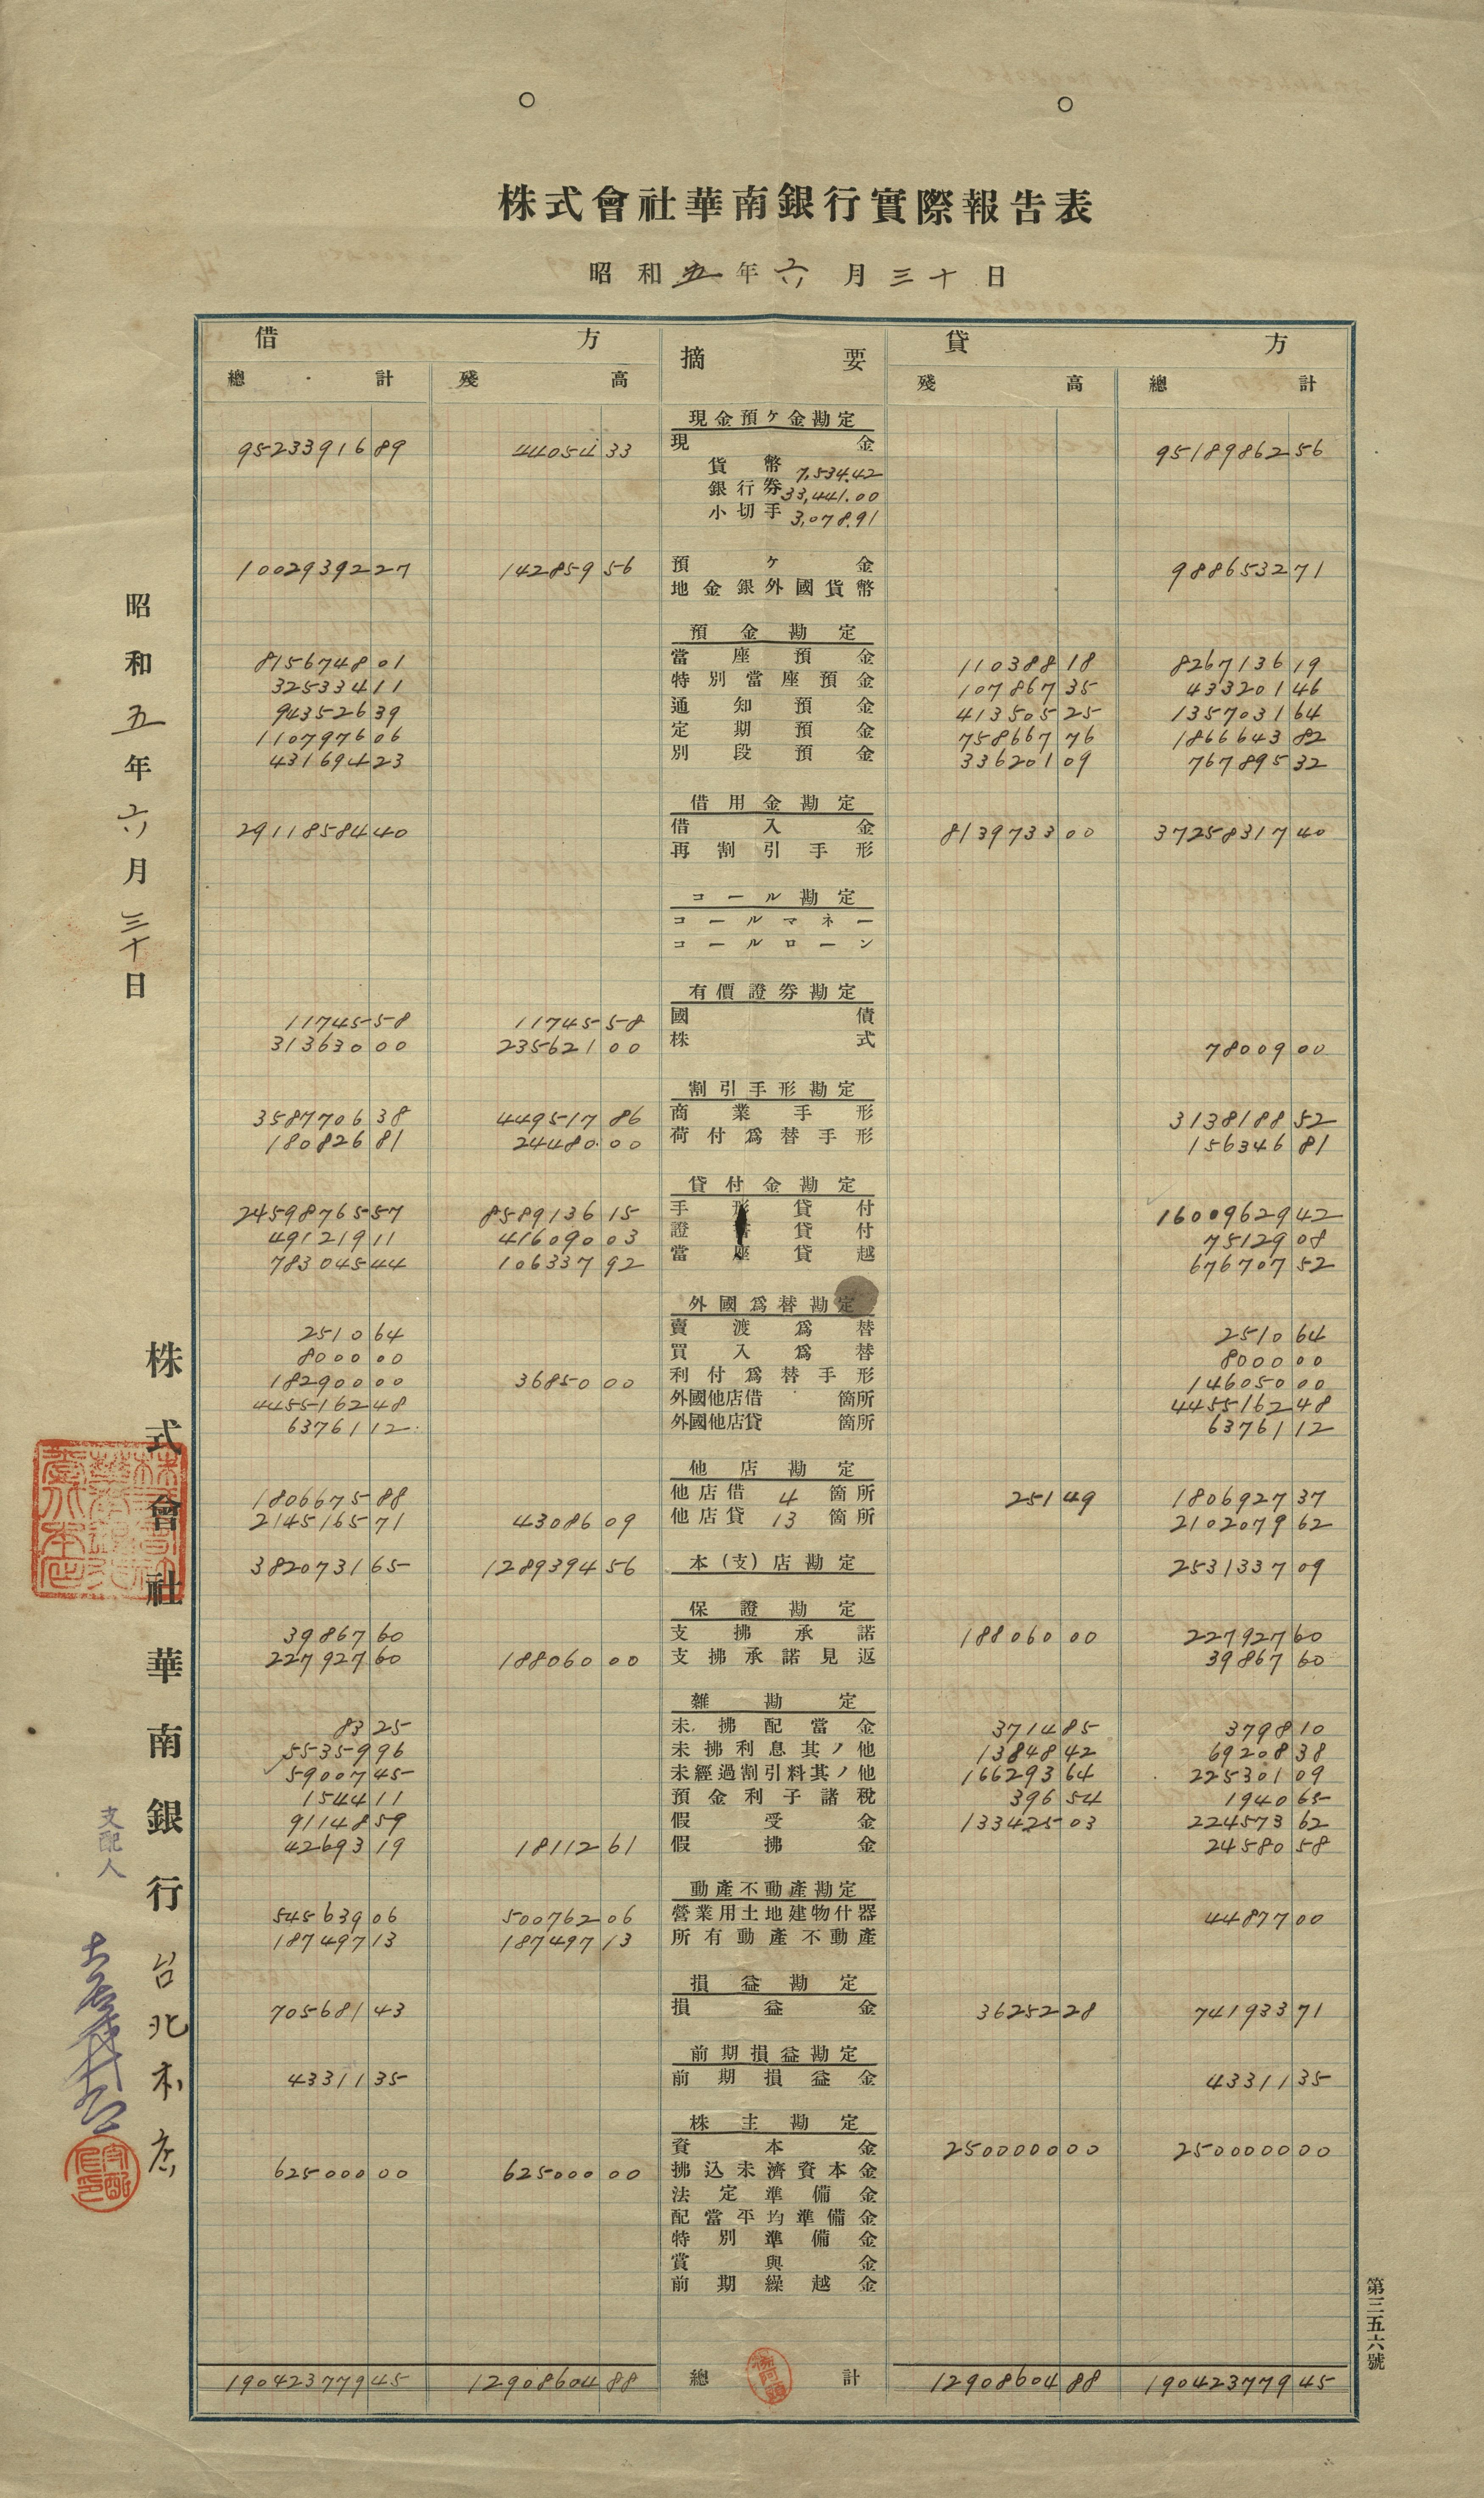 株式會社華南銀行實際報告表
昭和五年六月三十日
借方 摘要 貸方
總計 殘高 殘高 總計
現金預ケ金勘定
95233916 89 44054 33 現金 95189862 56
貨幣 7,534.42
銀行券 33,441.00
小切手 3,078.91
10029392 27 142859 56 預ケ金 9886532 71
地金銀外國貨幣
預金勘定
8156748 01 當座預金 110388 18 8267136 19
325334 11 特別當座預金 107867 35 433201 46
943526 39 通知預金 413505 25 1357031 64
1107976 06 定期預金 758667 76 1866643 82
431694 23 別段預金 336201 09 767895 32
借用金勘定
29118584 40 借入金 8139733 00 37258317 40
再割引手形
コール勘定
コールマネー
コールローン
有價證券勘定
11745 58 11745 58 國債
313630 00 235621 00 株式 78009 00
割引手形勘定
3587706 38 449517 86 商業手形 3138188 52
180826 81 24480 00 荷付爲替手形 156346 81
貸付金勘定
24598765 57 8589136 15 手形貸付 16009629 42
491219 11 416090 03 證書貸付 75129 08
783045 44 106337 92 當座貸越 676707 52
外國爲替勘定
2510 64 賣渡爲替 2510 64
8000 00 買入爲替 8000 00
182900 00 36850 00 利付爲替手形 146050 00
4455162 48 外國他店借 箇所 4455162 48
63761 12 外國他店貸 箇所 63761 12
他店勘定
1806675 88 他店借 4 箇所 251 49 1806927 37
2145165 71 43086 09 他店貸 13 箇所 2102079 62
3820731 65 1289394 56 本(支)店勘定 2531337 09
保證勘定
39867 60 支拂承諾 188060 00 227927 60
227927 60 188060 00 支拂承諾見返 39867 60
雜勘定
83 25 未拂配當金 3714 85 3798 10
55359 96 未拂利息其ノ他 13848 42 69208 38
59007 45 未經過割引料其ノ他 166293 64 225301 09
1544 11 預金利子諸稅 396 54 1940 65
91148 59 假受金 133425 03 224573 62
42693 19 18112 61 假拂金 24580 58
動產不動產勘定
545639 06 500762 06 營業用土地建物什器 44877 00
187497 13 187497 13 所有動產不動產
損益勘定
705681 43 損益金 36252 28 741933 71
前期損益勘定
43311 35 前期損益金 43311 35
株主勘定
資本金 2500000 00 2500000 00
625000 00 625000 00 拂込未濟資本金
法定準備金
配當平均準備金
特別準備金
賞與金
前期繰越金
190423779 45 12908604 88 總計 12908604 88 190423779 45
第三五六號
昭和五年六月三十日
株式會社華南銀行台北本店
支配人